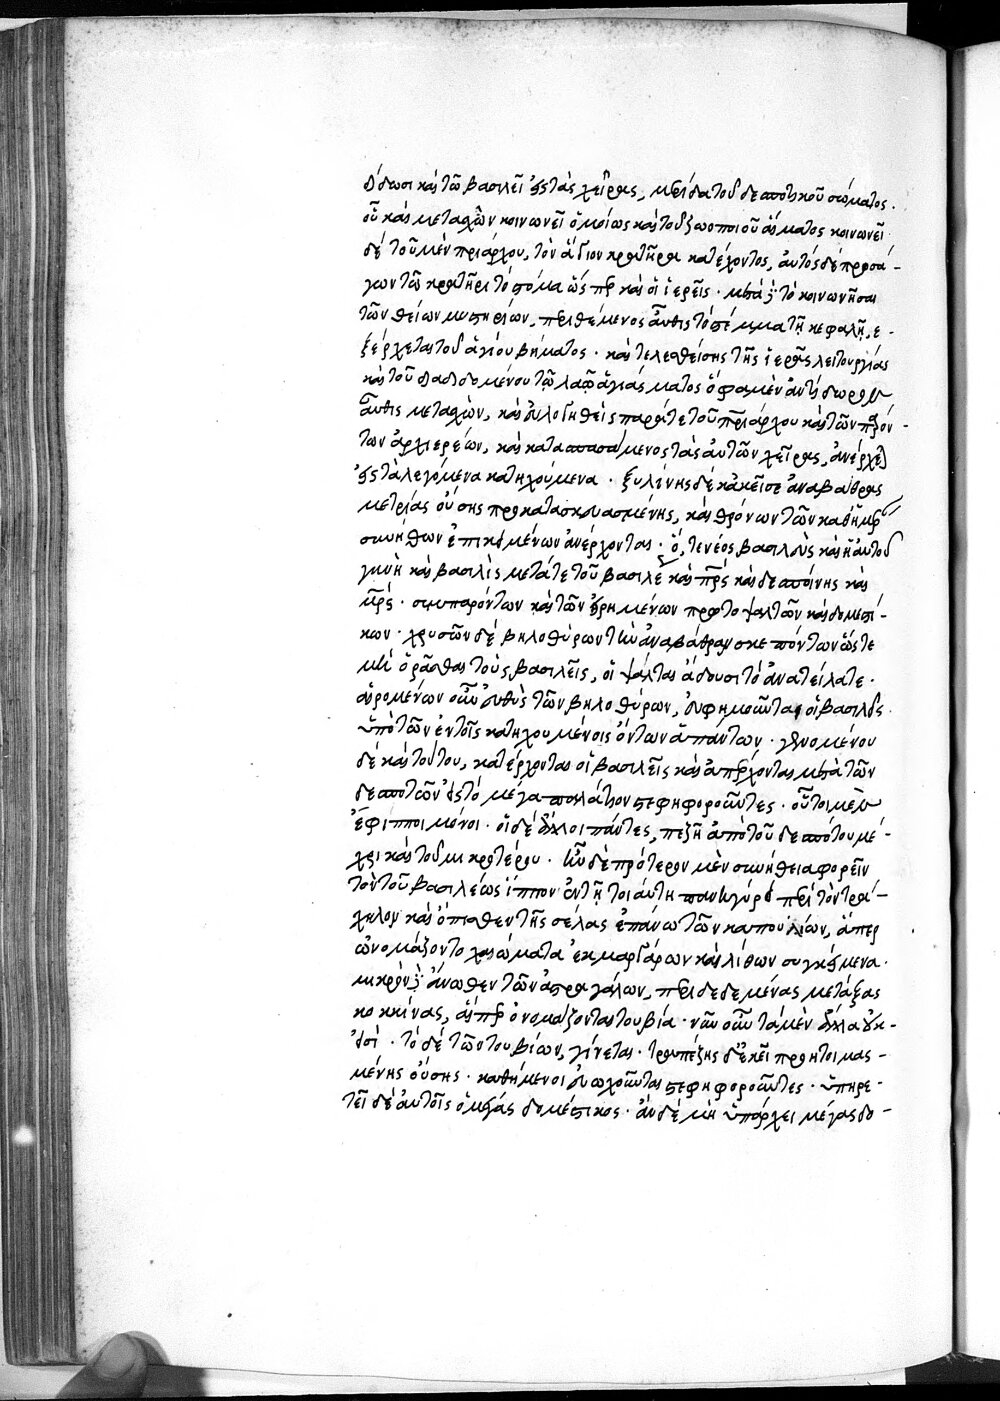 δίδωσι καὶ τῶ βασιλεῖ εἰς τὰς χεῖρας, μερίδα τοῦ δεσποτικοῦ σώματος.
οὗ καὶ μεταλαβὼν κοινωνεῖ ὁμοίως καὶ τοῦ ζωοποιοῦ αἵματος κοινωνεῖ
δὲ τοῦ μὲν πριάρχου, τὸν ἅγιον κρατῆρα κατέχοντος, αὐτὸς δὲ προσά-
γων τῶ κρατῆρι τὸ στόμα ὥσπερ καὶ οἱ ἱερεῖς · μετὰ δὲ τὸ κοινωνῆσαι
τῶν θείων μυστηρίων, περιθέμενος αὖθις τὸ στέμμα τῆ κεφαλῆ, ἐ-
ξέρχεται τοῦ ἁγίου βήματος · καὶ τελεσθείσης τῆς ἱερᾶς λειτουργίας
καὶ τοῦ διαδιδομένου τῷ λαῷ ἁγιάσματος ὅ φαμεν ἀντίδωρον
αὖθις μεταλαβὼν, καὶ εὐλογηθεὶς παρά τε τοῦ πριάρχου καὶ τῶν παρόν-
των ἀρχιερέων, καὶ κατασπασάμενος τὰς αὐτῶν χεῖρας, ἀνέρχεται
εἰς τὰ λεγόμενα κατηχούμενα · ξυλίνης δὲ κἀκεῖσε ἀναβάθρας
μετρίας οὔσης προκατασκευασμένης, καὶ θρόνων τῶν καθημερ
συνήθων ἐπικειμένων ἀνέρχονται · ὅ, τε νέος βασιλεὺς καὶ ἡ αὐτοῦ
γυνὴ καὶ βασιλὶς μετά τε τοῦ βασιλέως καὶ πρς καὶ δεσποίνης καὶ
μρς · συμπαρόντων καὶ τῶν εἰρημένων πρωτοψαλτῶν καὶ δομεστί-
κων · χρυσῶν δὲ βηλοθύρων τὴν ἀναβάθραν σκεπόντων ὥστε
μὴ ὁρᾶσθαι τοὺς βασιλεῖς, οἱ ψάλται ἄδουσι τὸ ἀνατείλατε ·
αἰρομένων οὖν εὐθὺς τῶν βηλοθύρων, εὐφημοῦνται οἱ βασιλεῖς
ὑπὸ τῶν ἐν τοῖς κατηχουμένοις ὄντων ἁπάντων · γενομένου
δὲ καὶ τούτου, κατέρχονται οἱ βασιλεῖς καὶ ἀπέρχονται μετὰ τῶν
δεσποτῶν εἰς τὸ μέγα παλάτιον στεφηφοροῦντες · οὗτοι μὲν
ἔφιπποι μόνοι · οἱ δὲ ἄλλοι πάντες, πεζῆ ἀπὸ τοῦ δεσπότου μέ-
χρι καὶ τοῦ μικροτέρου · ἦν δὲ πρότερον μὲν συνήθεια φορεῖν
τὸν τοῦ βασιλέως ἵππον ἐν τῆ τοιαύτη πανηγύρει περὶ τὸν τρά-
χηλον καὶ ὄπισθεν τῆς σέλας ἐπάνω τῶν καπουλίων, ἅπερ
ὠνομάζοντο χαιώματα ἐκ μαργάρων καὶ λίθων συγκείμενα ·
μικρὸν δὲ ἄνωθεν τῶν ἀστραγάλων, περιδεδεμένας μετάξας
κοκκίνας, ἅσπερ ὀνομάζονται τουβία · νῦν οὖν τὰ μὲν ἄλλα οὐκ-
εἰσί · τὸ δὲ τῶν τουβίων, γίνεται · τραπέζης δ' ἐκεῖ προητοιμασ-
μένης οὔσης · καθήμενοι εὐωχοῦνται στεφηφοροῦντες · ὑπηρε-
τεῖ δὲ αὐτοῖς ὁ μέγας δομέστικος · ἂν δὲ μὴ ὑπάρχει μέγας δο-